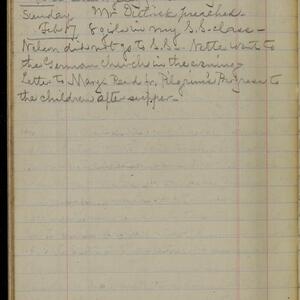 Sunday Mr Dittrick preached.
Feb 17 8 girls in my S.S. class -
Nelson did not go to S.S. - Nette went to
the German Church in the evening
Letter to Mary. Read fr. Pilgrim's Progress to
the children after supper -